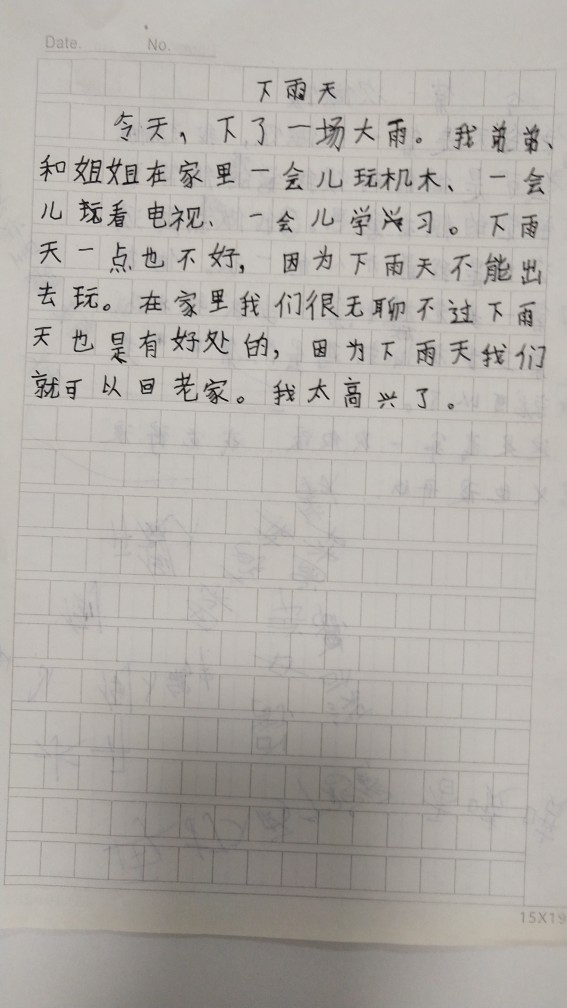 Date. No.
下雨天
今天，下了一场大雨。我弟弟、
和姐姐在家里一会儿玩机木、一会
儿玩看电视、一会儿学习。下雨
天一点也不好，因为下雨天不能出
去玩。在家里我们很无聊不过下雨
天也是有好处的，因为下雨天我们
就可以回老家。我太高兴了。
15X19